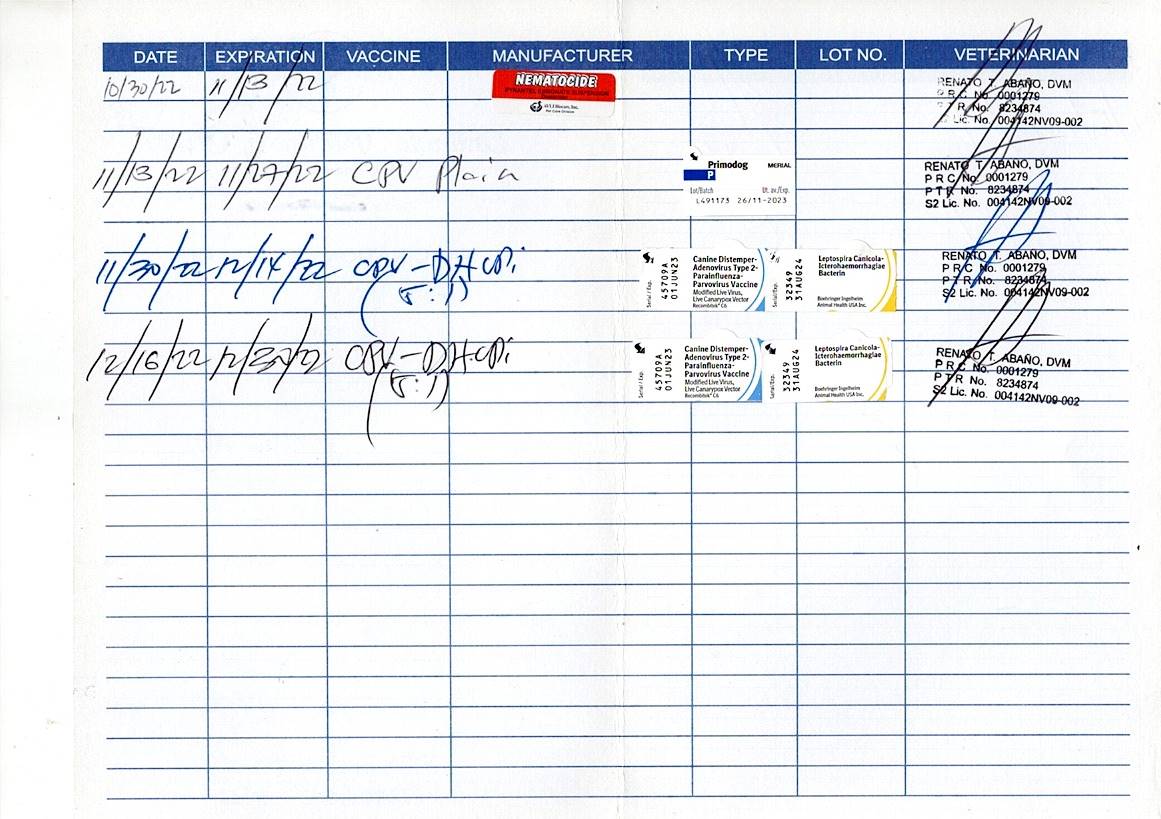 DATE EXPIRATION VACCINE MANUFACTURER TYPE LOT NO. VETERINARIAN
10/30/22 11/13/22
NEMATOCIDE
PYRANTEL EMBONATE SUSPENSION
RENATO T. ABAÑO, DVM
P R C No. 0001279
P T R No. 8234874
S2 Lic. No. 004142NV09-002
11/13/22 11/27/22 CPV Plain
Primodog MERIAL
P
Lot/Batch Ut. av./Exp.
L491173 26/11-2023
RENATO T. ABAÑO, DVM
P R C No. 0001279
P T R No. 8234874
S2 Lic. No. 004142NV09-002
11/30/22 12/14/22 CPV-DHLPi
(5:1)
Serial / Exp.
45709A
01JUN23
Canine Distemper-
Adenovirus Type 2-
Parainfluenza-
Parvovirus Vaccine
Modified Live Virus,
Live Canarypox Vector
Recombitek® C6
32349
31AUG24
Leptospira Canicola-
Icterohaemorrhagiae
Bacterin
Boehringer Ingelheim
Animal Health USA Inc.
RENATO T. ABAÑO, DVM
P R C No. 0001279
P T R No. 8234874
S2 Lic. No. 004142NV09-002
12/16/22 12/30/22 CPV-DHLPi
(5:1)
Serial / Exp.
45709A
01JUN23
Canine Distemper-
Adenovirus Type 2-
Parainfluenza-
Parvovirus Vaccine
Modified Live Virus,
Live Canarypox Vector
Recombitek® C6
32349
31AUG24
Leptospira Canicola-
Icterohaemorrhagiae
Bacterin
Boehringer Ingelheim
Animal Health USA Inc.
RENATO T. ABAÑO, DVM
P R C No. 0001279
P T R No. 8234874
S2 Lic. No. 004142NV09-002